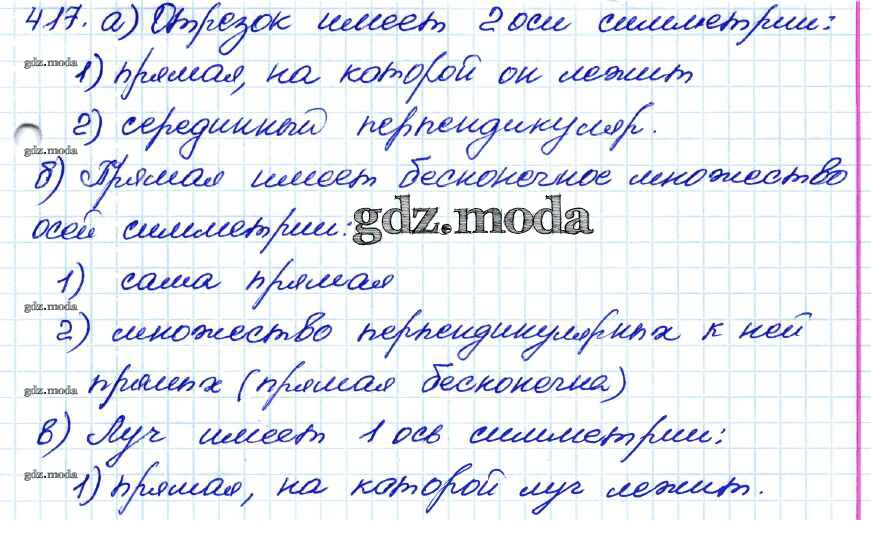 417. а) Отрезок имеет 2 оси симметрии:
gdz.moda
1) прямая, на которой он лежит
2) серединный перпендикуляр.
gdz.moda
б) Прямая имеет бесконечное множество
gdz.moda
осей симметрии:
gdz.moda
1) сама прямая
gdz.moda
2) множество перпендикулярных к ней
прямых (прямая бесконечна)
gdz.moda
в) Луч имеет 1 ось симметрии:
gdz.moda
1) прямая, на которой луч лежит.
gdz.moda